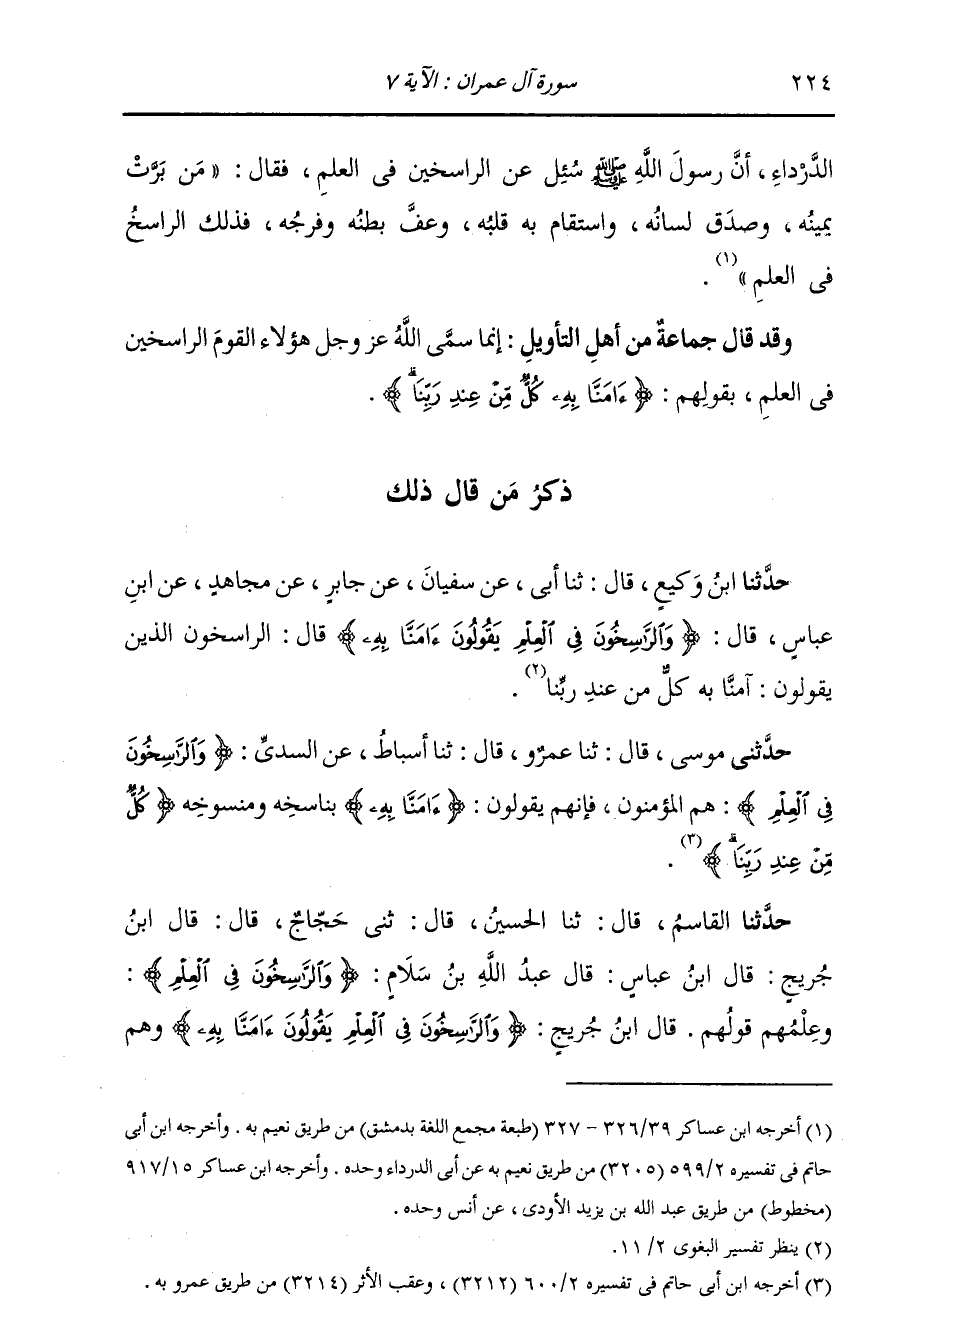 ٢٢٤ سورة آل عمران : الآية ٧
الدَّرْداءِ ، أنَّ رسولَ اللَّهِ ﷺ سُئِل عن الراسخين فى العلمِ ، فقال : « مَن بَرَّتْ
يمينُه ، وصدَق لسانُه ، واستقام به قلبُه ، وعفَّ بطنُه وفرجُه ، فذلك الراسخُ
فى العلمِ »(١) .
وقد قال جماعةٌ من أهلِ التأويلِ : إنما سمَّى اللَّهُ عز وجل هؤلاء القومَ الراسخين
فى العلمِ ، بقولِهم : ﴿ ءَامَنَّا بِهِۦ كُلٌّ مِّنْ عِندِ رَبِّنَاۗ ﴾ .
ذكرُ مَن قال ذلك
حدَّثنا ابنُ وَكيعٍ ، قال : ثنا أبى ، عن سفيانَ ، عن جابرٍ ، عن مجاهدٍ ، عن ابنِ
عباسٍ ، قال : ﴿ وَٱلرَّٰسِخُونَ فِى ٱلْعِلْمِ يَقُولُونَ ءَامَنَّا بِهِۦ ﴾ قال : الراسخون الذين
يقولون : آمنَّا به كلٌّ من عندِ ربِّنا(٢) .
حدَّثنى موسى ، قال : ثنا عمرٌو ، قال : ثنا أسباطُ ، عن السدىِّ : ﴿ وَٱلرَّٰسِخُونَ
فِى ٱلْعِلْمِ ﴾ : هم المؤمنون ، فإنهم يقولون : ﴿ ءَامَنَّا بِهِۦ ﴾ بناسخِه ومنسوخِه ﴿ كُلٌّ
مِّنْ عِندِ رَبِّنَاۗ ﴾(٣) .
حدَّثنا القاسمُ ، قال : ثنا الحسينُ ، قال : ثنى حَجّاجٌ ، قال : قال ابنُ
جُريجٍ : قال ابنُ عباسٍ : قال عبدُ اللَّهِ بنُ سَلَامٍ : ﴿ وَٱلرَّٰسِخُونَ فِى ٱلْعِلْمِ ﴾ :
وعِلْمُهم قولُهم . قال ابنُ جُريجٍ : ﴿ وَٱلرَّٰسِخُونَ فِى ٱلْعِلْمِ يَقُولُونَ ءَامَنَّا بِهِۦ ﴾ وهم
(١) أخرجه ابن عساكر ٣٢٦/٣٩ – ٣٢٧ (طبعة مجمع اللغة بدمشق) من طريق نعيم به . وأخرجه ابن أبى
حاتم فى تفسيره ٥٩٩/٢ (٣٢٠٥) من طريق نعيم به عن أبى الدرداء وحده . وأخرجه ابن عساكر ٩١٧/١٥
(مخطوط) من طريق عبد الله بن يزيد الأودى ، عن أنس وحده .
(٢) ينظر تفسير البغوى ٢/ ١١.
(٣) أخرجه ابن أبى حاتم فى تفسيره ٦٠٠/٢ (٣٢١٢) ، وعقب الأثر (٣٢١٤) من طريق عمرو به .